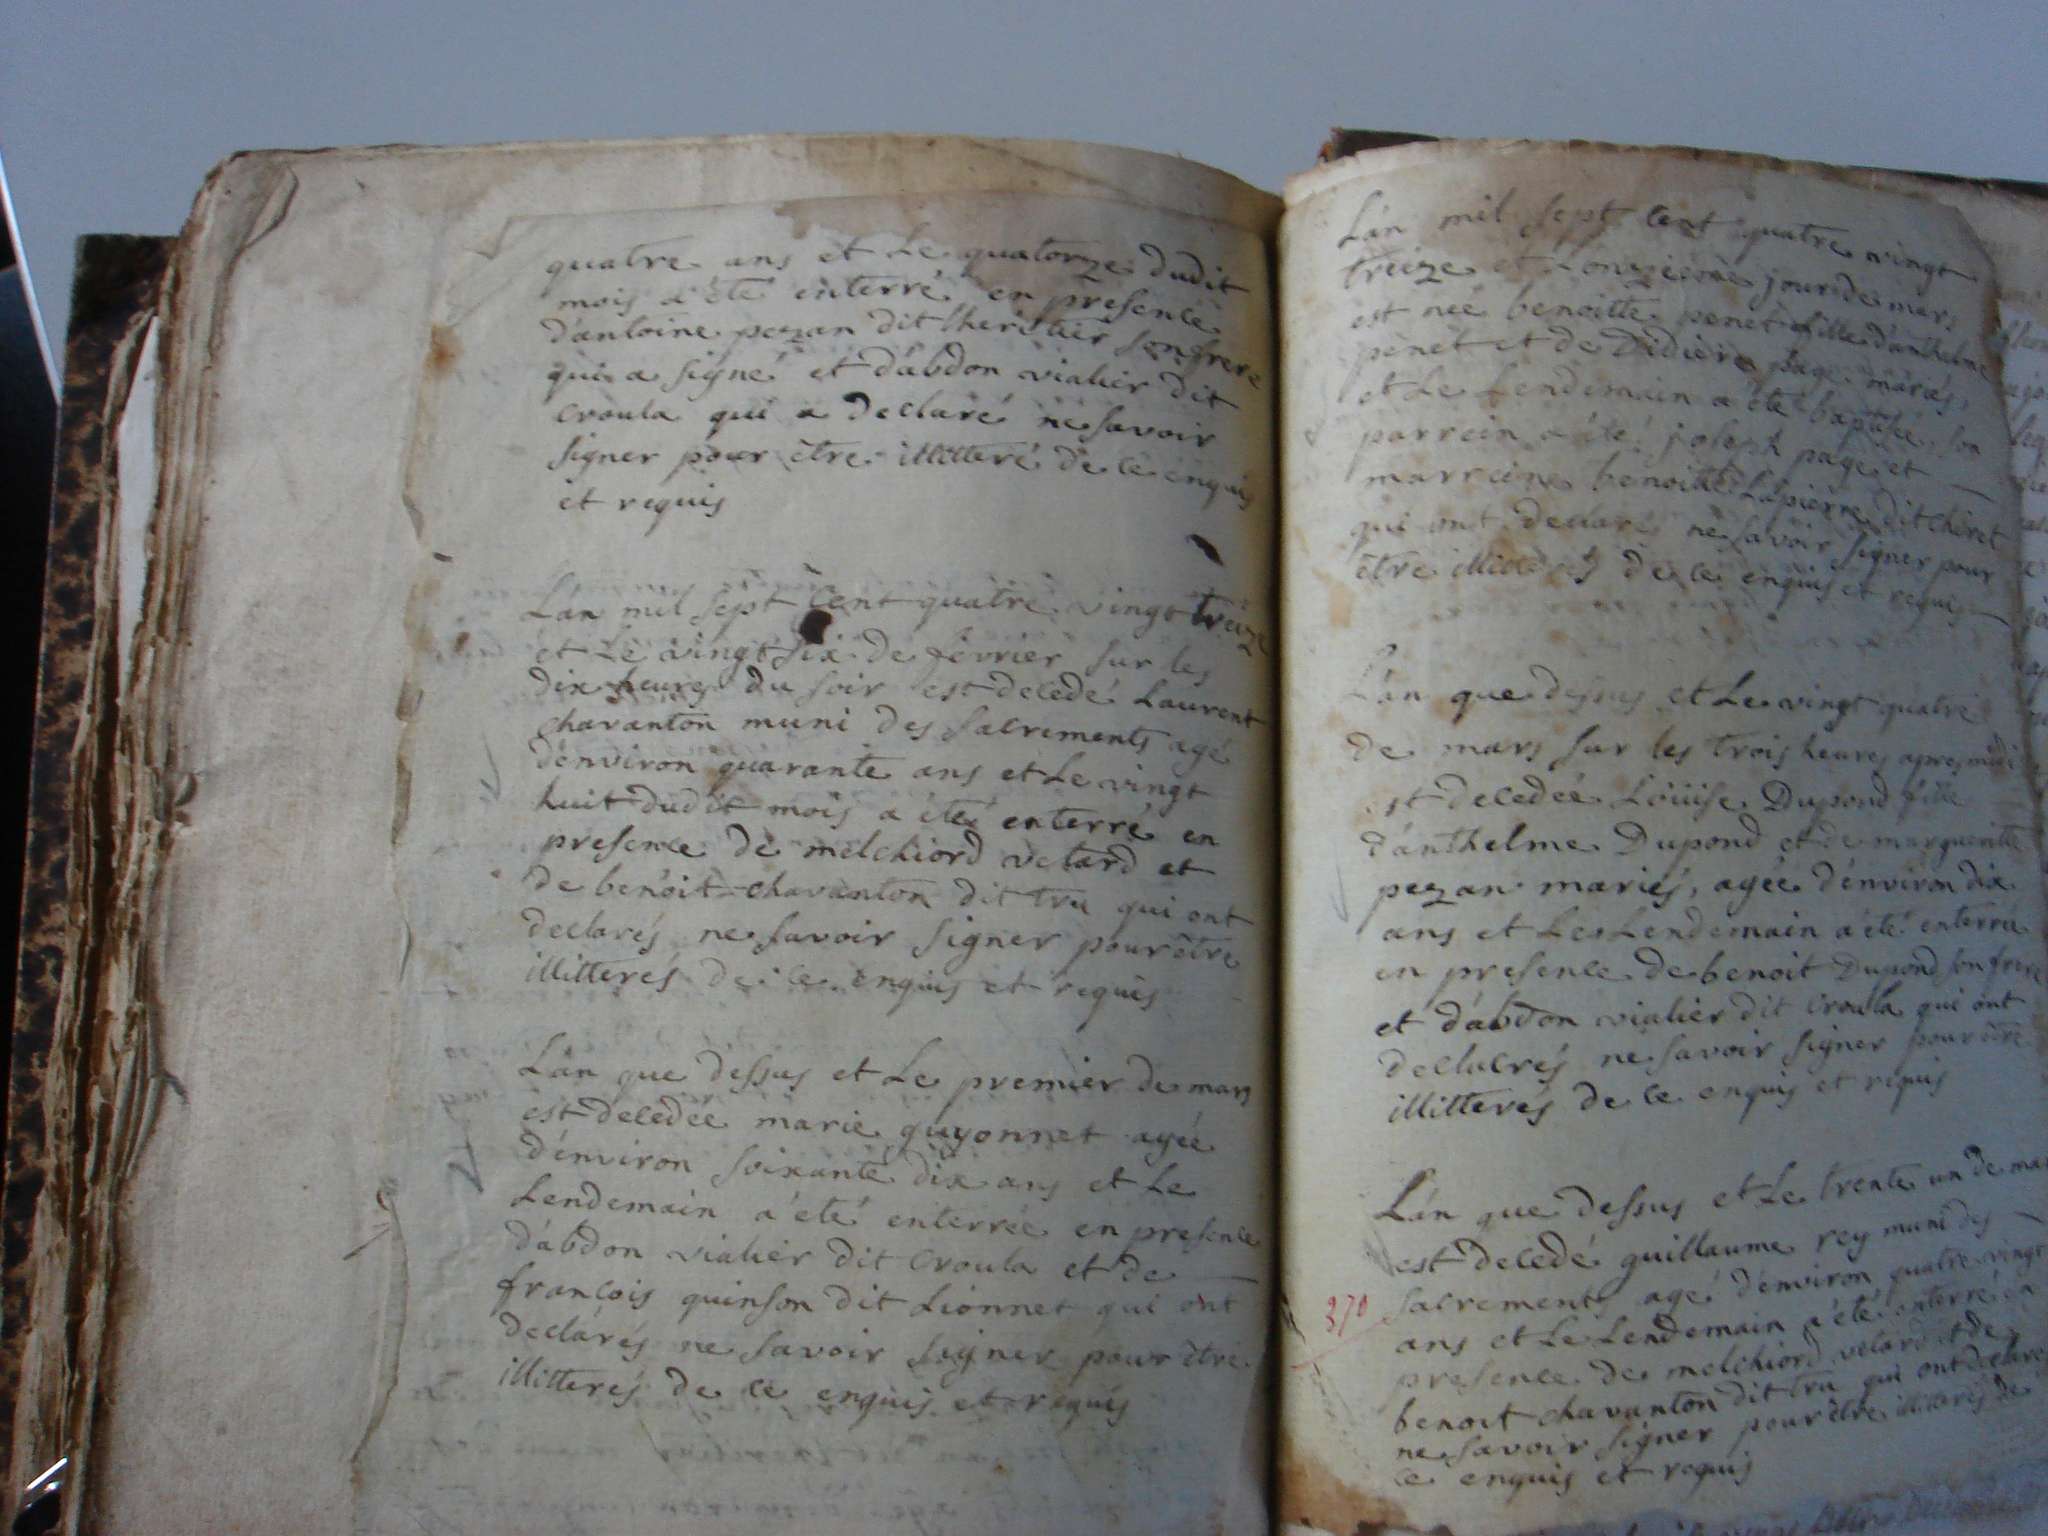 quatre ans et Le quatorze dudit
mois a été enterré en presence
d'antoine pezan dit lheritier son frere
qui a signé et d'abdon vialier dit
croula qui a declaré ne savoir
signer pour être illitteré de ce enquis
et requis
L'an mil sept cent quatre vingt treize
et Le vingt six de fevrier sur les
dix heures du soir est decedé Laurent
chavanton muni des sacrements agé
d'environ quarante ans et Le vingt
huit dudit mois a été enterré en
presence de melchiord velard et
de benoit chavanton dit tru qui ont
declarés ne savoir signer pour être
illitterés de ce enquis et requis
L'an que dessus et Le premier de mars
est decedée marie guyonnet agée
d'environ soixante dix ans et Le
Lendemain a été enterrée en presence
d'abdon vialier dit croula et de
françois quinson dit Lionnet qui ont
declarés ne savoir signer pour être
illitterés de ce enquis et requis
L'an mil sept cent quatre vingt
treize et L'onzieme jour de mars
est née benoitte penet fille d'anthelme
penet et de Didiere page mariés,
et Le Lendemain a été baptisée son
parrein a été joseph page et
marreine benoitte Lapierre dit chiret
qui ont declarés ne savoir signer pour
être illitterés de ce enquis et requis
L'an que dessus et Le vingt quatre
de mars sur les trois heures apres midi
est decedée Loüise Dupond fille
d'anthelme Dupond et de margueritte
pezan mariés, agée d'environ dix
ans et Le Lendemain a été enterrée
en presence de benoit Dupond son frere
et d'abdon vialier dit croula qui ont
declarés ne savoir signer pour être
illitterés de ce enquis et requis
L'an que dessus et Le trente un de mars
est decedé guillaume rey muni des
370
sacrements agé d'environ quatre vingt
ans et Le Lendemain a été enterré en
presence de melchiord velard et de
benoit chavanton dit tru qui ont declarés
ne savoir signer pour être illitterés de
ce enquis et requis